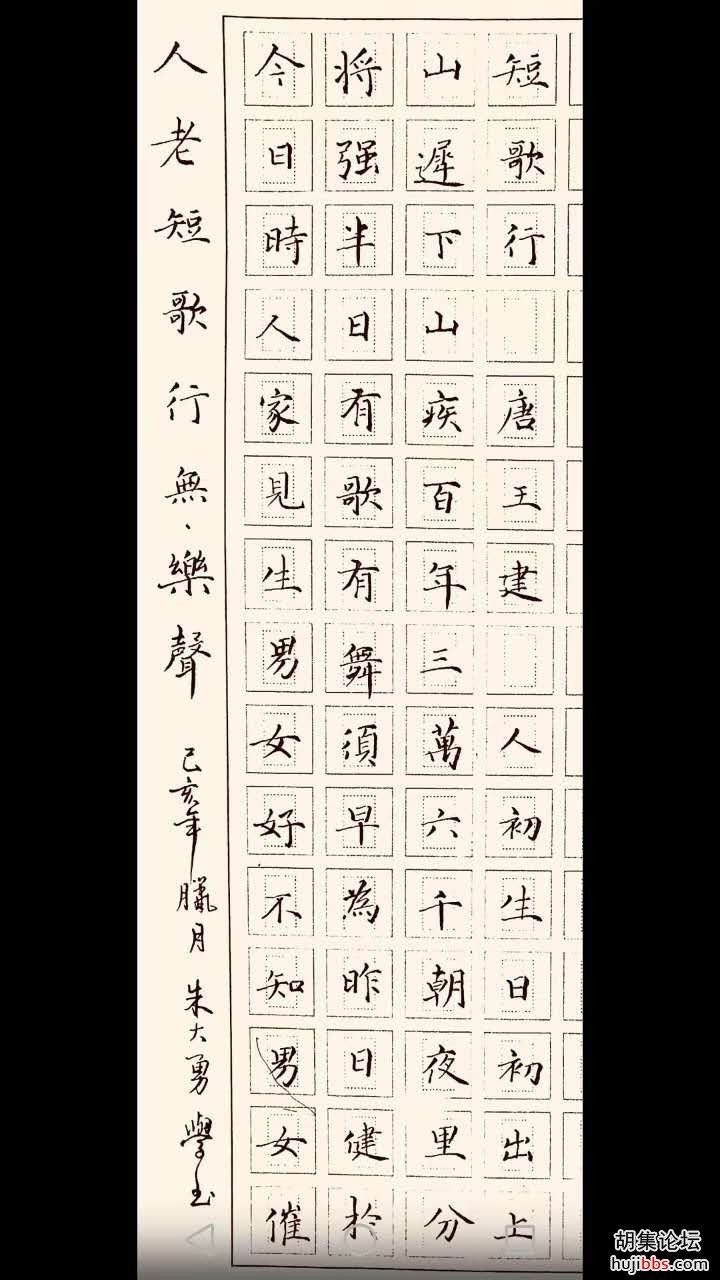 短歌行 唐王建 人初生日初出上
山遲下山疾百年三萬六千朝夜里分
将强半日有歌有舞須早為昨日健於
今日時人家見生男女好不知男女催
人老短歌行無、樂聲
己亥年臘月 朱大勇 學书
胡集论坛
hujibbs.com